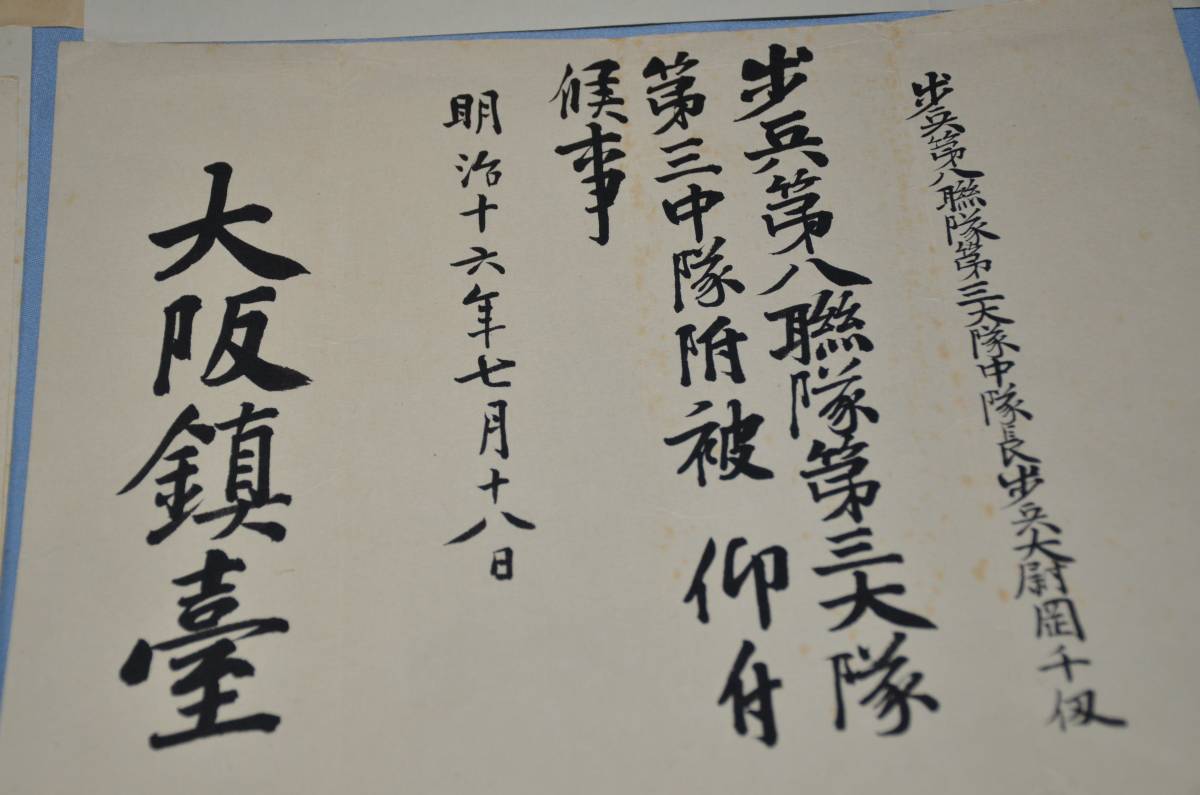 步兵第八聯隊第三大隊中隊長步兵大尉岡千仭
步兵第八聯隊第三大隊
第三中隊附被 仰付
候事
明治十六年七月十八日
大阪鎮臺